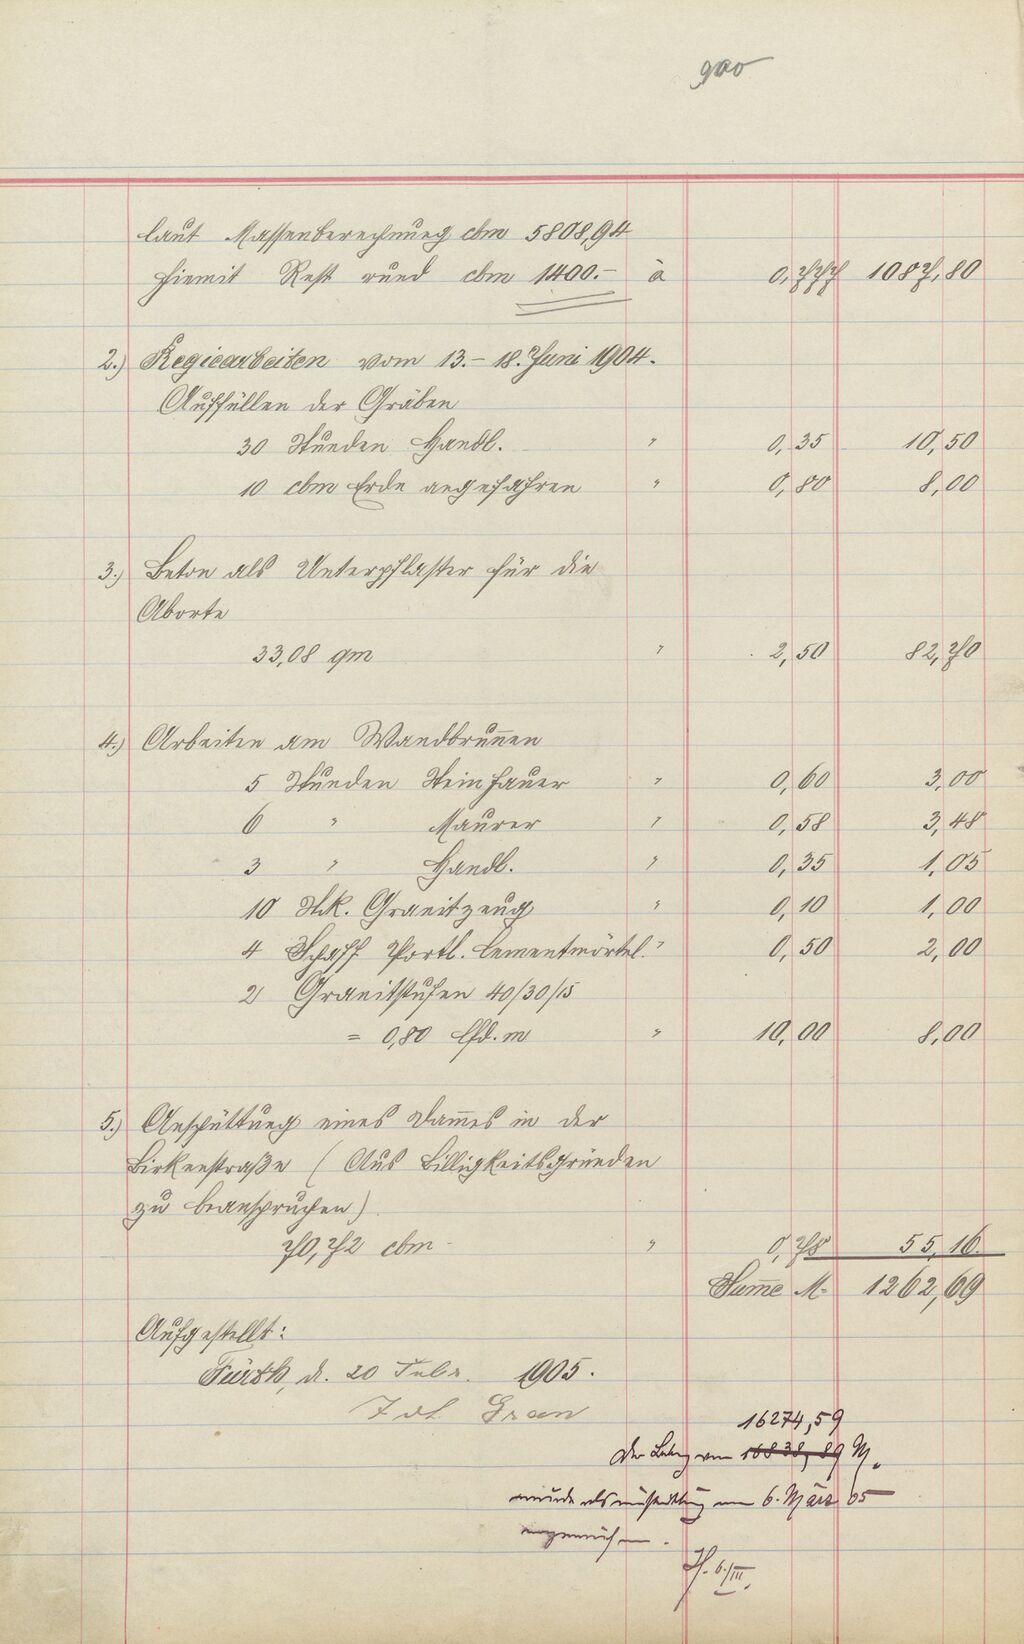 900
laut Massenberechnung cbm 5808,94
hiemit Rest rund cbm 1400.– à 0,777 1087,80
2.) Regiearbeiten vom 13.– 18. Juni 1904.
Auffüllen der Gräben
30 Stunden Handl. " 0,35 10,50
10 cbm Erde angefahren " 0,80 8,00
3.) Beton als Unterpflaster für die
Aborte
33,08 qm " 2,50 82,70
4.) Arbeiten am Wandbrunnen
5 Stunden Steinhauer " 0,60 3,00
6 " Maurer " 0,58 3,48
3 " Handl. " 0,35 1,05
10 Stk. Granitzeug " 0,10 1,00
4 Schaff Portl. Cementmörtel " 0,50 2,00
2 Granitstufen 40/30/15
= 0,80 lfd. m " 10,00 8,00
5.) Anschüttung eines Dammes in der
Birkenstraße (Aus Billigkeitsgründen
zu beanspruchen)
70,72 cbm " 0,78 55,16
Summe M. 1262,69
Aufgestellt:
Fürth, d. 20 Febr. 1905.
Gran
16274,59
Der Betrag von 16838,89 M.
wurde als am 6. März 05
6./III.